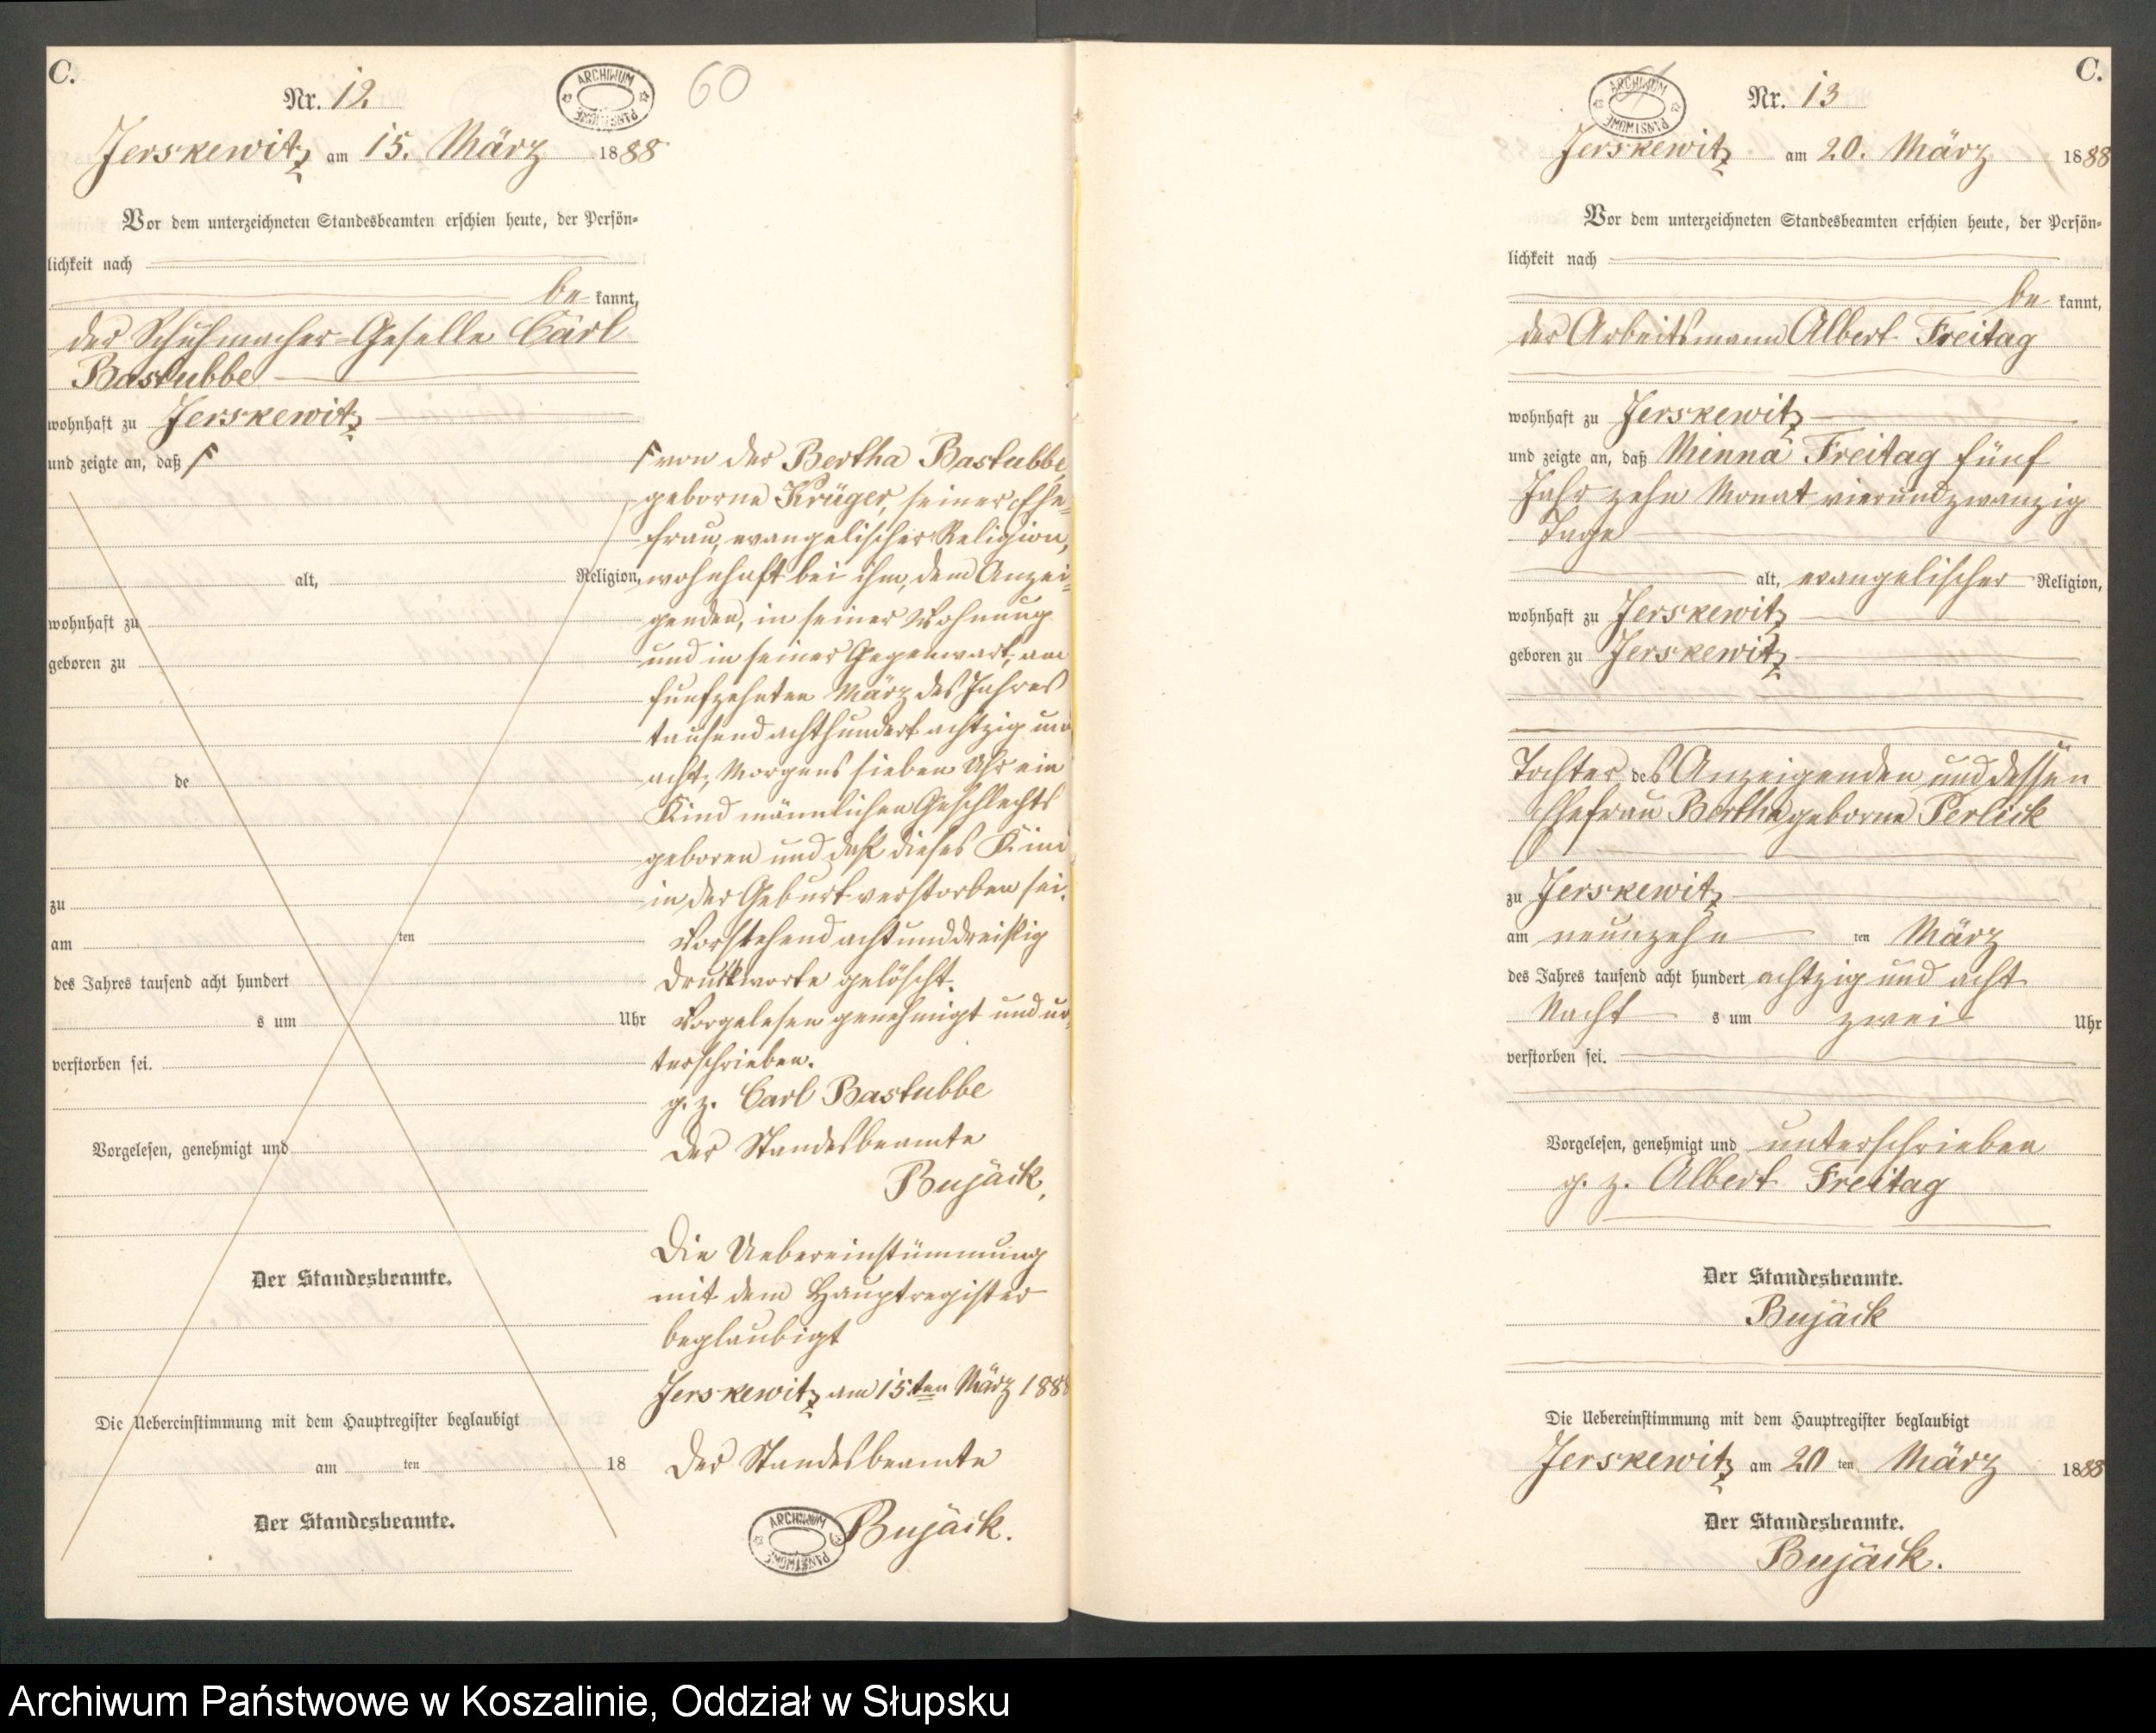 C.
Nr. 12.
ARCHIWUM PAŃSTWOWE
60
Jerskewitz, am 15. März 1888
Vor dem unterzeichneten Standesbeamten erschien heute, der Persön=
lichkeit nach
be kannt,
der Schuhmacher-Geselle Carl
Bastubbe
wohnhaft zu Jerskewitz
und zeigte an, daß
alt, Religion,
wohnhaft zu
geboren zu
de
zu
am ten
des Jahres tausend acht hundert
s um Uhr
verstorben sei.
Vorgelesen, genehmigt und
Der Standesbeamte.
Die Uebereinstimmung mit dem Hauptregister beglaubigt
am ten 18
Der Standesbeamte.
von der Bertha Bastubbe,
geborne Krüger, seiner Ehe=
frau, evangelischer Religion,
wohnhaft bei ihm, dem Anzei=
genden, in seiner Wohnung
und in seiner Gegenwart, am
funfzehnten März des Jahres
tausend achthundert achtzig und
acht, Morgens sieben Uhr ein
Kind männlichen Geschlechts
geboren und daß dieses Kind
in der Geburt verstorben sei.
Vorstehend achtunddreißig
Druckworte gelöscht.
Vorgelesen genehmigt und un=
terschrieben.
g. z. Carl Bastubbe
Der Standesbeamte
Bujäck.
Die Uebereinstümmung
mit dem Hauptregister
beglaubigt
Jerskewitz am 15ten März 1888
Der Standesbeamte
ARCHIWUM PAŃSTWOWE
Bujäck.
C.
ARCHIWUM PAŃSTWOWE
Nr. 13
Jerskewitz am 20. März 1888
Vor dem unterzeichneten Standesbeamten erschien heute, der Persön=
lichkeit nach
be kannt,
der Arbeitsmann Albert Freitag
wohnhaft zu Jerskewitz
und zeigte an, daß Minna Freitag fünf
Jahr zehn Monat vierundzwanzig
Tage
alt, evangelischer Religion,
wohnhaft zu Jerskewitz
geboren zu Jerskewitz
Tochter des Anzeigenden und dessen
Ehefrau Bertha geborne Perlick
zu Jerskewitz
am neunzehn ten März
des Jahres tausend acht hundert achtzig und acht
Nacht s um zwei Uhr
verstorben sei.
Vorgelesen, genehmigt und unterschrieben
g. z. Albert Freitag
Der Standesbeamte.
Bujäck
Die Uebereinstimmung mit dem Hauptregister beglaubigt
Jerskewitz am 20 ten März 1888
Der Standesbeamte.
Bujäck.
Archiwum Państwowe w Koszalinie, Oddział w Słupsku